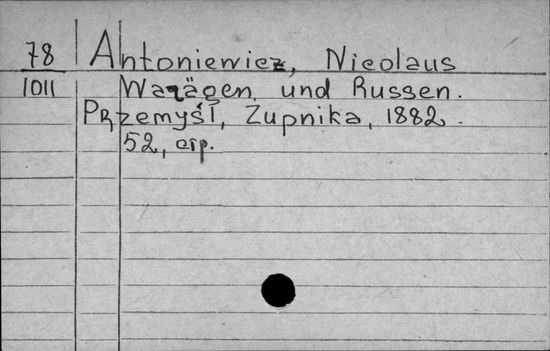 78 Antoniewicz, Nicolaus
1011 Warägen und Russen.
Przemyśl, Zupnika, 1882.
52, стр.